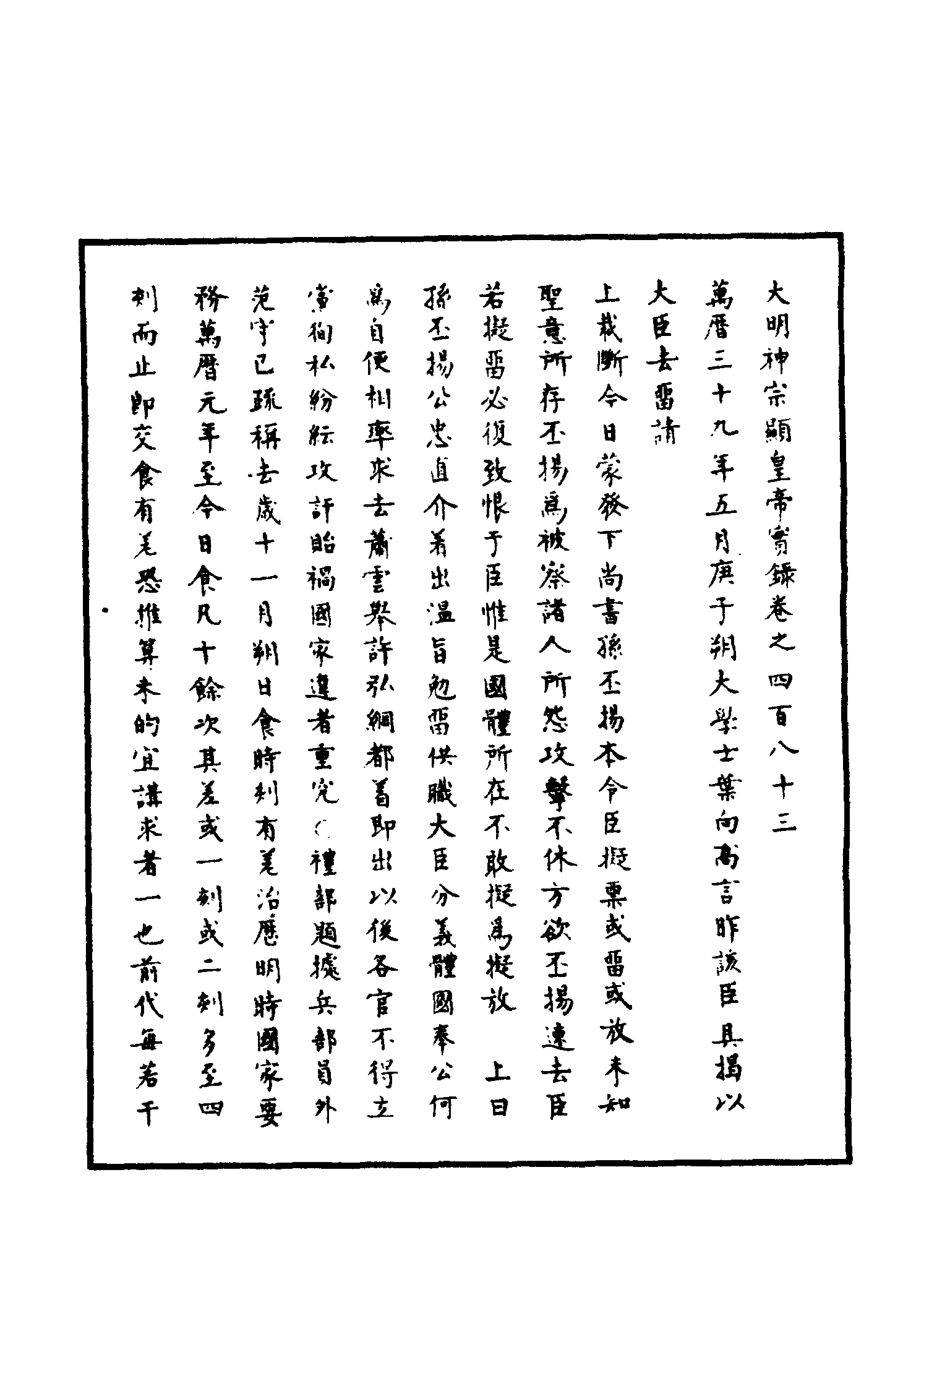 大明神宗顯皇帝實錄卷之四百八十三
萬曆三十九年五月庚子朔大學士葉向高言昨該臣具揭以
大臣去畱請
上裁斷今日蒙發下尚書孫丕揚本令臣擬票或畱或放未知
聖意所存丕揚爲被察諸人所怨攻擊不休方欲丕揚速去臣
若擬畱必復致恨于臣惟是國體所在不敢擬爲擬放　上曰
孫丕揚公忠直介着出溫旨勉畱供職大臣分義體國奉公何
爲自便相率求去蕭雲舉許弘綱都着即出以後各官不得立
黨徇私紛紜攻訐貽禍國家違者重究○禮部題據兵部員外
范守己疏稱去歲十一月朔日食時刻有差治曆明時國家要
務萬曆元年至今日食凡十餘次其差或一刻或二刻多至四
刻而止即交食有差恐推算未的宜講求者一也前代每若干